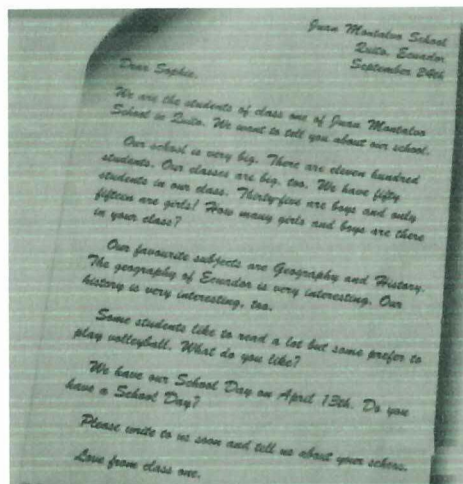 Juan Montalvo School
Quito, Ecuador
September 24th
Dear Sophie,
We are the students of class one of Juan Montalvo
School in Quito. We want to tell you about our school.
Our school is very big. There are eleven hundred
students. Our classes are big, too. We have fifty
students in our class. Thirty-five are boys and only
fifteen are girls! How many girls and boys are there
in your class?
Our favourite subjects are Geography and History.
The geography of Ecuador is very interesting. Our
history is very interesting, too.
Some students like to read a lot but some prefer to
play volleyball. What do you like?
We have our School Day on April 13th. Do you
have a School Day?
Please write to us soon and tell us about your school.
Love from class one.